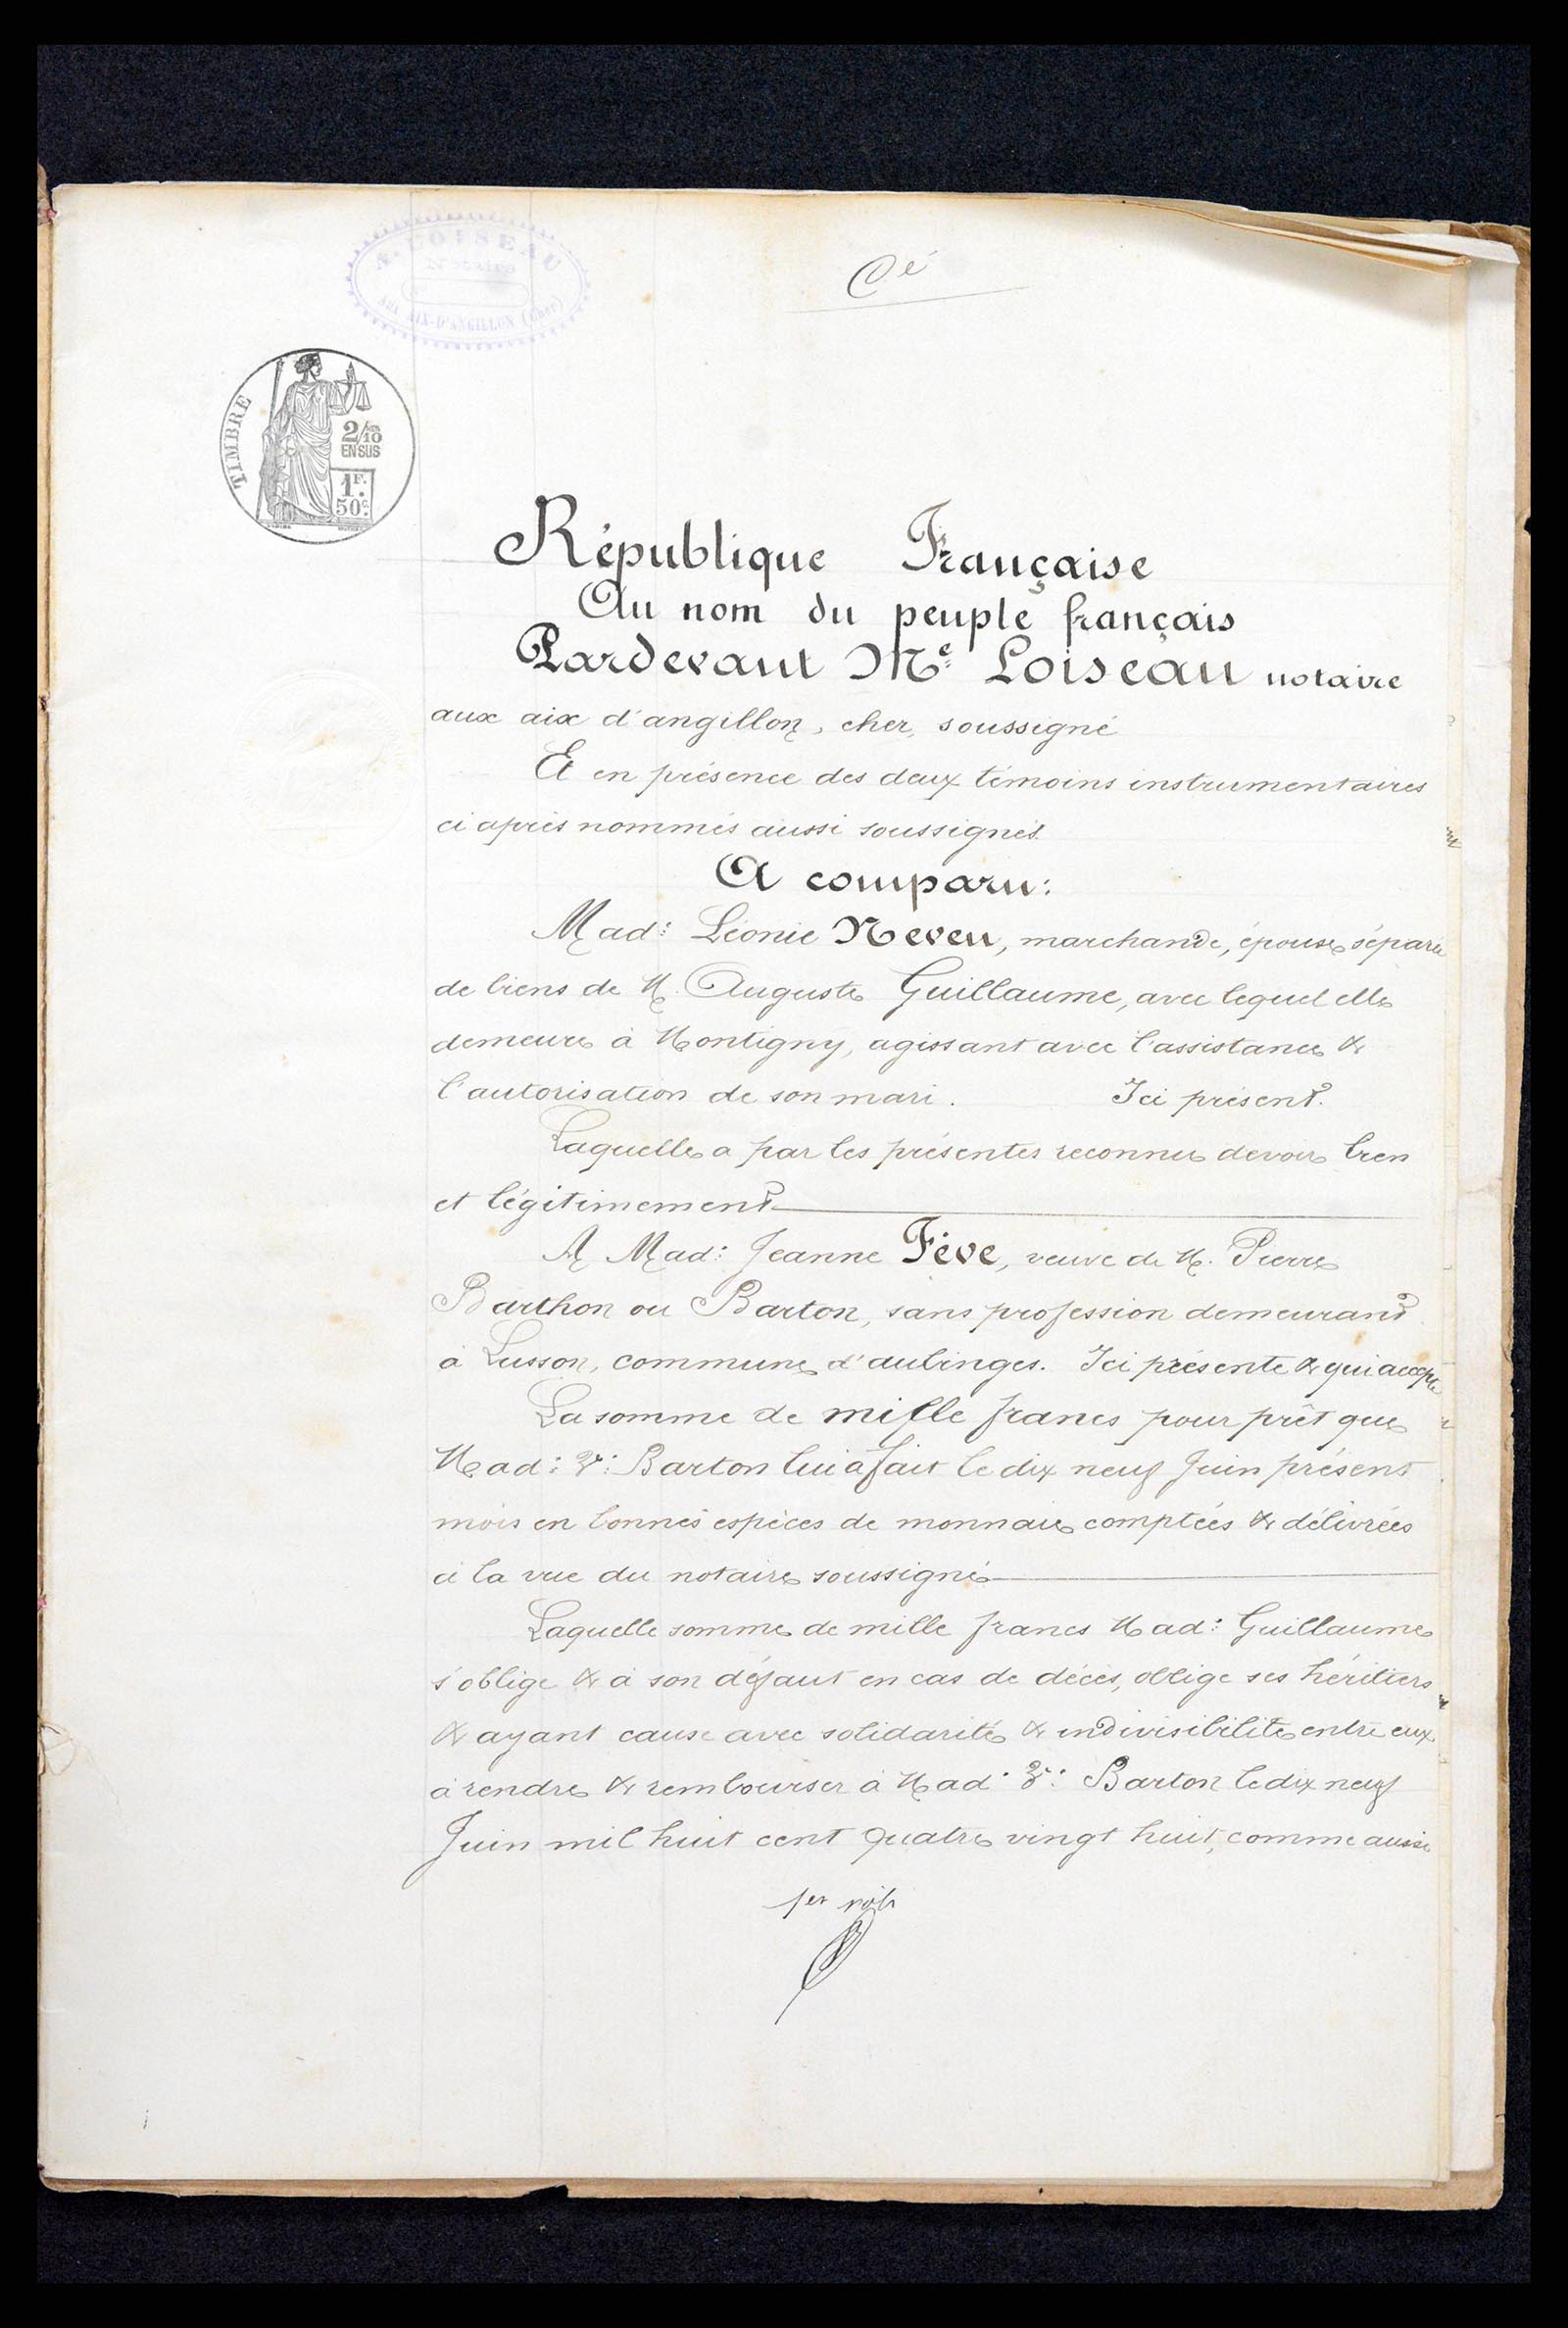 LOISEAU
Notaire
AUX AIX-D'ANGILLON (Cher)
Cé
TIMBRE
2/10
EN SUS
1F.
50c.
République Française
Au nom du peuple français
Pardevant Me Loiseau notaire
aux aix d'angillon, cher, soussigné
Et en présence des deux témoins instrumentaires
ci après nommés aussi soussignés.
A comparu:
Mad: Léonie Neveu, marchande, épouse séparée
de biens de M. Auguste Guillaume, avec lequel elle
demeure à Montigny, agissant avec l'assistance &
l'autorisation de son mari. Ici présent.
Laquelle a par les présentes reconnu devoir bien
et légitimement
A Mad: Jeanne Fève, veuve de M. Pierre
Barthon ou Barton, sans profession demeurant
à Lusson, commune d'aubinges. Ici présente & qui accepte
La somme de mille francs pour prêt que
Mad: Ve: Barton lui a fait le dix neuf Juin présent
mois en bonnes espèces de monnaie comptées & délivrées
à la vue du notaire soussigné
Laquelle somme de mille francs Mad: Guillaume
s'oblige & à son défaut en cas de décès, oblige ses héritiers
& ayant cause avec solidarité & indivisibilité entre eux
à rendre & rembourser à Mad: Ve: Barton le dix neuf
Juin mil huit cent quatre vingt huit, comme aussi
1er rôle